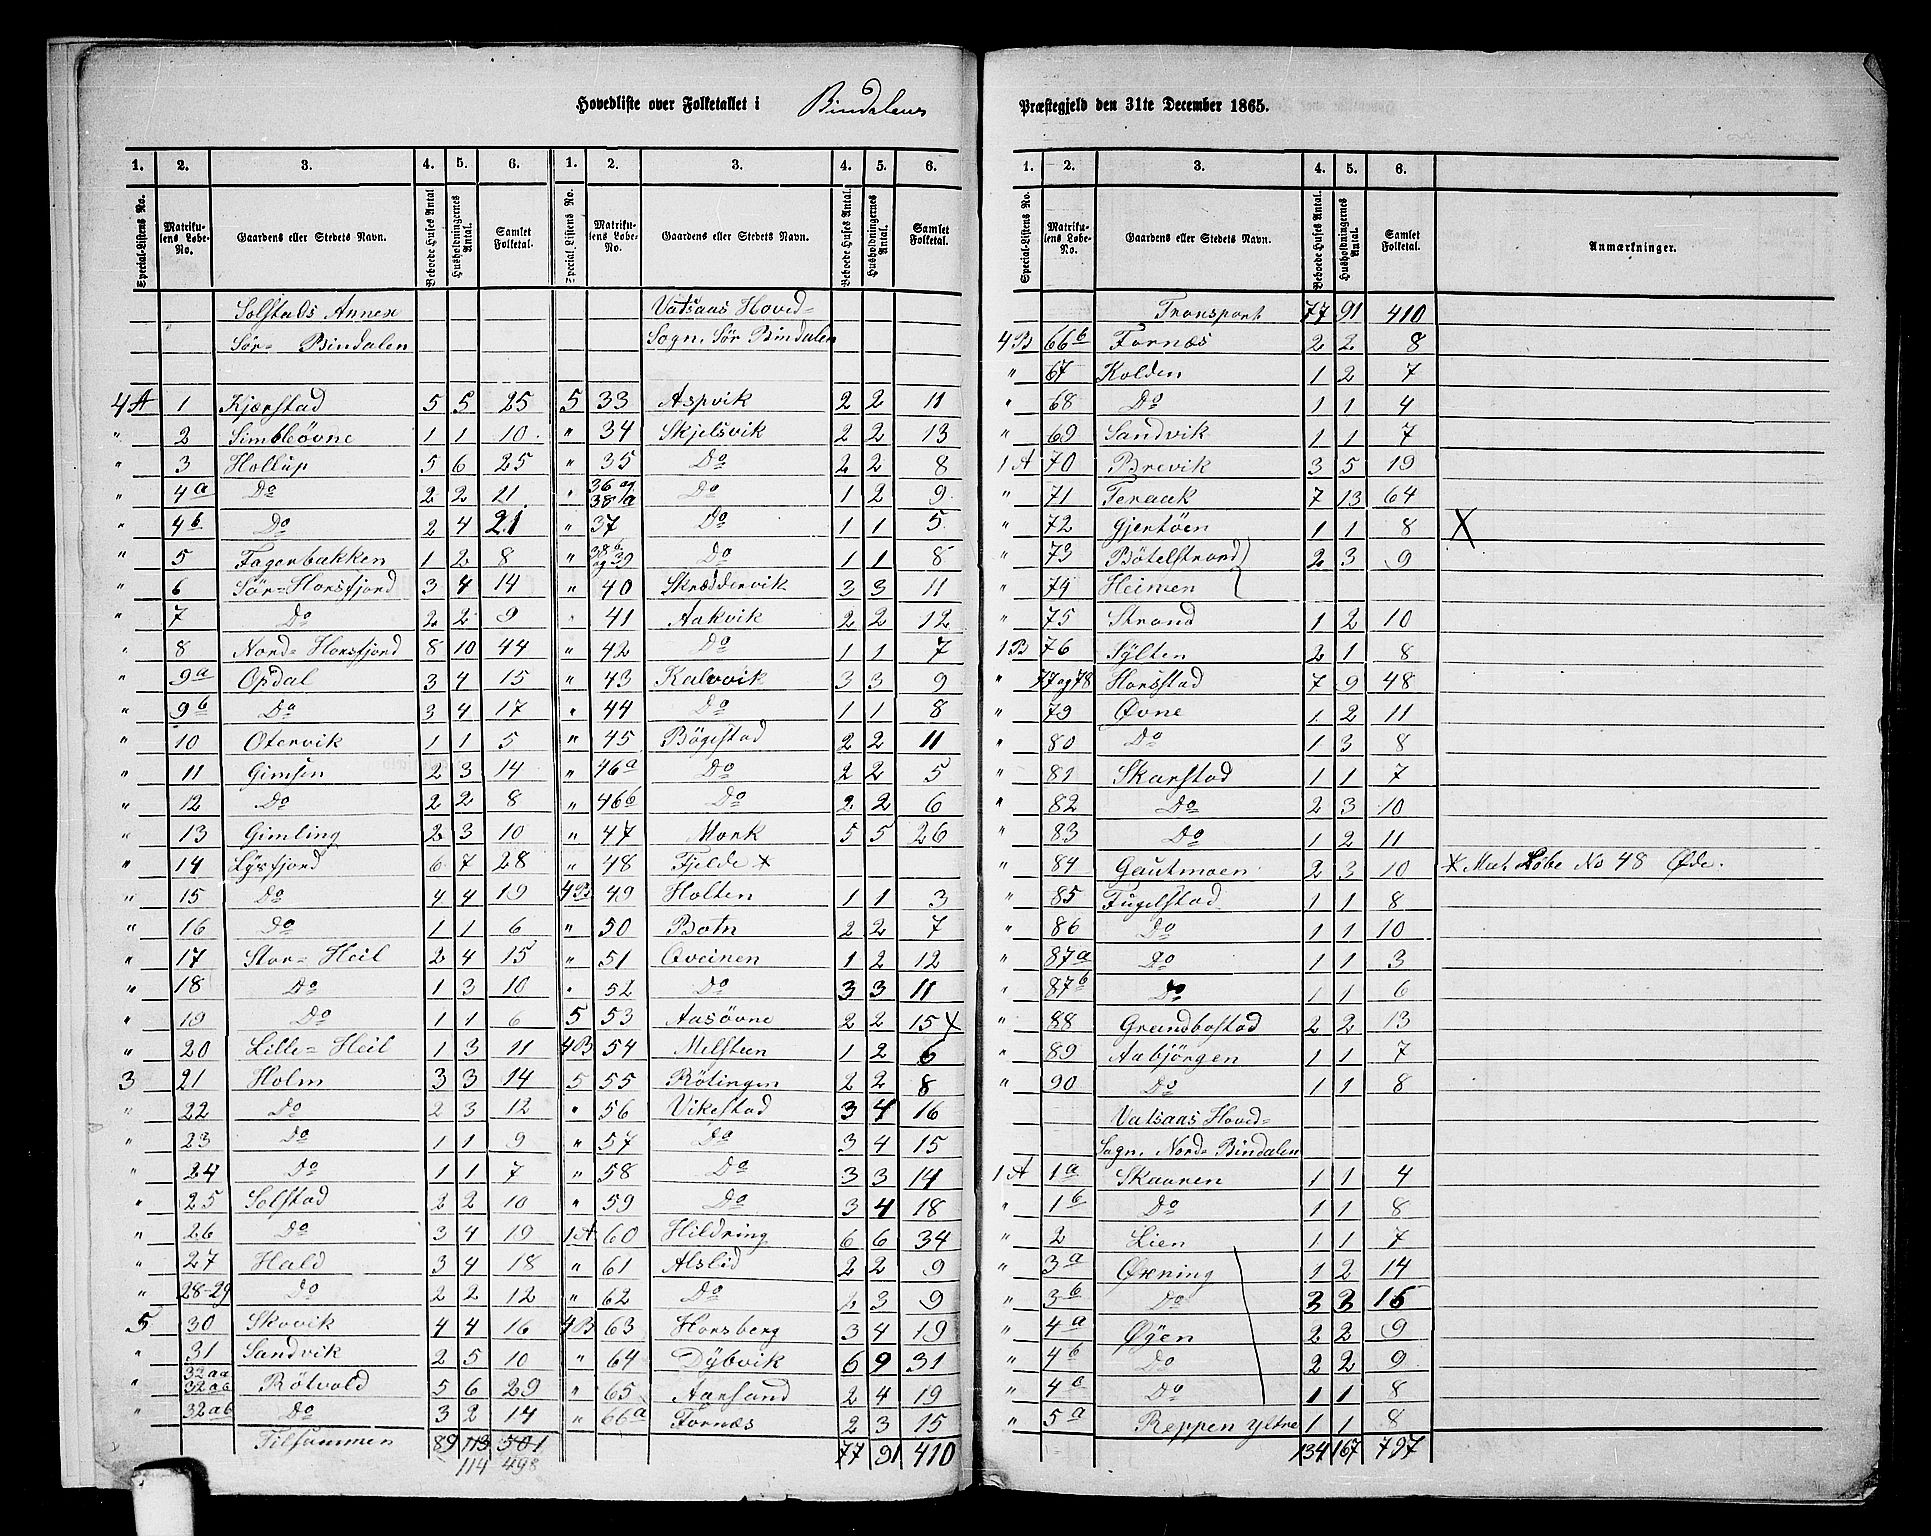 Hovedliste over Folketallet i Bindalens
1. 2. 3. 4. 5. 6. 1. 2. 3. 4. 5. 6.
Special-Listens No. Matrikulens Løbe-No. Gaardens eller Stedets Navn. Beboede Huses Antal Husholdningernes Antal. Samlet Folketal. Special Listens No. Matrikulens Løbe-No. Gaardens eller Stedets Navn. Beboede Huses Antal. Husholdningernes Antal. Samlet Folketal.
Solstads Annex Vatsaas Hoved=
Sør= Bindalen Sogn, Sør Bindalen
4A 1 Kjærstad 5 5 25 5 33 Aspvik 2 2 11
" 2 Simbleøvne 1 1 10 " 34 Skjelsvik 2 2 13
" 3 Hollup 5 6 25 " 35 Do 2 2 8
" 4a Do 2 2 11 " 36 og 38a Do 1 2 9
" 4b Do 2 4 21 " 37 Do 1 1 5
" 5 Fagerbakken 1 2 8 " 38b og 39 Do 1 1 8
" 6 Sør=Horsfjord 3 4 14 " 40 Skræddervik 3 3 11
" 7 Do 2 2 9 " 41 Aakvik 2 2 12
" 8 Nord=Horsfjord 8 10 44 " 42 Do 1 1 7
" 9a Opdal 3 4 15 " 43 Kalvvik 3 3 9
" 9b Do 3 4 17 " 44 Do 1 1 8
" 10 Otervik 1 1 5 " 45 Bøgestad 2 2 11
" 11 Gimsen 2 3 14 " 46a Do 2 2 5
" 12 Do 2 2 8 " 46b Do 2 2 6
" 13 Gimling 2 3 10 " 47 Mork 5 5 26
" 14 Lysfjord 6 7 28 " 48 Fjelde ×
" 15 Do 4 4 19 4B 49 Holten 1 1 3
" 16 Do 1 1 6 " 50 Botn 2 2 7
" 17 Stor=Heil 2 4 15 " 51 Qveinen 1 2 12
" 18 Do 1 3 10 " 52 Do 3 3 11
" 19 Do 1 1 6 5 53 Aasøvne 2 2 15 ×
" 20 Lille=Heil 1 3 11 4B 54 Melsteen 1 2 6
3 21 Holm 3 3 14 5 55 Røtingen 2 2 8
" 22 Do 2 3 12 " 56 Vikestad 3 4 16
" 23 Do 1 1 9 " 57 Do 3 4 15
" 24 Do 1 1 7 " 58 Do 3 3 14
" 25 Solstad 2 2 10 " 59 Do 3 4 18
" 26 Do 3 4 19 1A 60 Hildring 6 6 34
" 27 Hald 3 4 18 " 61 Alslid 2 2 9
" 28-29 Do 2 2 12 " 62 Do 2 3 9
5 30 Skovik 4 4 16 4B 63 Horsberg 3 4 19
" 31 Sandvik 2 5 10 " 64 Dybvik 6 9 31
" 32aa 32ab Røtvold 5 6 29 " 65 Aarsand 2 4 19
" 32ab Do 3 2 14 " 66a Fornæs 2 3 15
Tilsammen 89 113 501 77 91 410
114 498
Præstegjeld den 31te December 1865.
1. 2. 3. 4. 5. 6.
Special-Listens No. Matrikulens Løbe-No. Gaardens eller Stedets Navn. Beboede Huses Antal. Husholdningernes Antal. Samlet Folketal. Anmærkninger.
Transport 77 91 410
4B 66b Fornæs 2 2 8
" 67 Kolden 1 2 7
" 68 Do 1 1 4
" 69 Sandvik 1 1 7
1A 70 Brevik 3 5 19
" 71 Teraak 7 13 64
" 72 Gjertøen 1 1 8 ×
" 73 Bøtelstrand 2 3 9
" 74 Heimen
" 75 Strand 1 2 10
1B 76 Sylten 2 1 8
" 77 og 78 Horsstad 7 9 48
" 79 Øvne 1 2 11
" 80 Do 1 3 8
" 81 Skarstad 1 1 7
" 82 Do 2 3 10
" 83 Do 1 2 11
" 84 Gautmoen 2 3 10 × Mat. Løbe No 48 Øde.
" 85 Fugelstad 1 1 8
" 86 Do 1 1 10
" 87a Do 1 1 3
" 87b Do 1 1 6
" 88 Grandbostad 2 2 13
" 89 Aabjørgen 1 1 7
" 90 Do 1 1 8
Vatsaas Hoved=
Sogn, Nord= Bindalen
1A 1a Skaaren 1 1 4
" 1b Do 1 1 8
" 2 Lien 1 1 7
" 3a Øxning 1 2 14
" 3b Do 3 3 15
" 4a Øyen 2 2 9
" 4b Do 2 2 9
" 4c Do 1 1 8
" 5a Reppen ytre 1 1 8
134 167 797